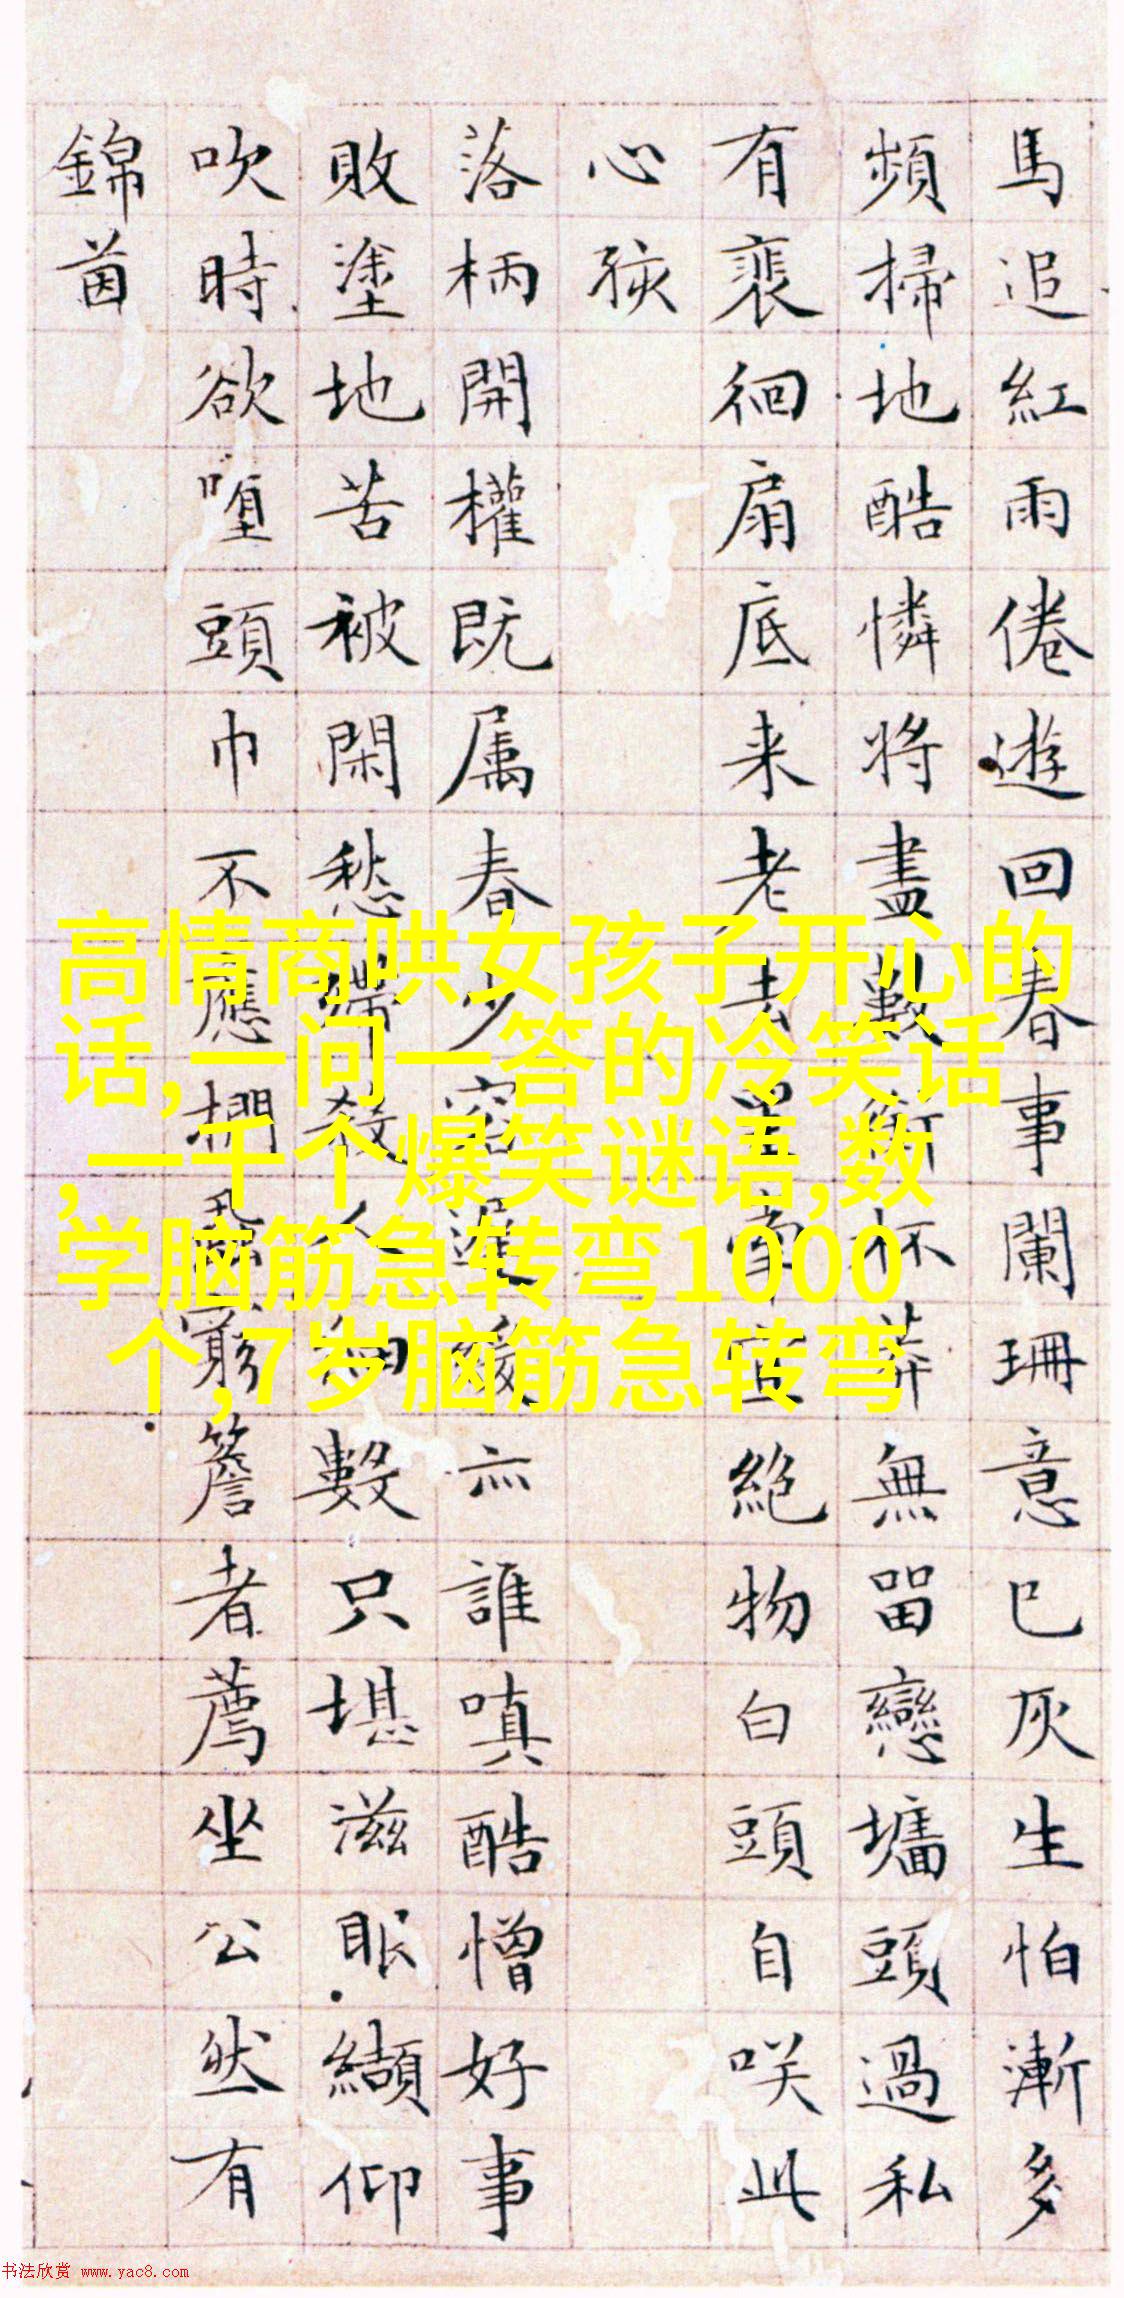 馬追紅雨倦遊回春事闌珊意已灰生怕漸多
頻掃地酷憐將盡數銜杯莽無留戀墻頭過私
有裴徊扇底来老去星家宜絕物白頭自咲此
心孩
落柄開權既属春少容遲緩亦誰嗔酷憎好事
敗塗地苦被閑愁殺人細數只堪滋眼纈仰
吹時欲墮頭巾不應捫蝨窮簷者薦坐公然有
錦茵
高情商哄女孩子开心的
话,一问一答的冷笑话
,一千个爆笑谜语,数
学脑筋急转弯1000
个,7岁脑筋急转弯
书法欣赏 www.yac8.com